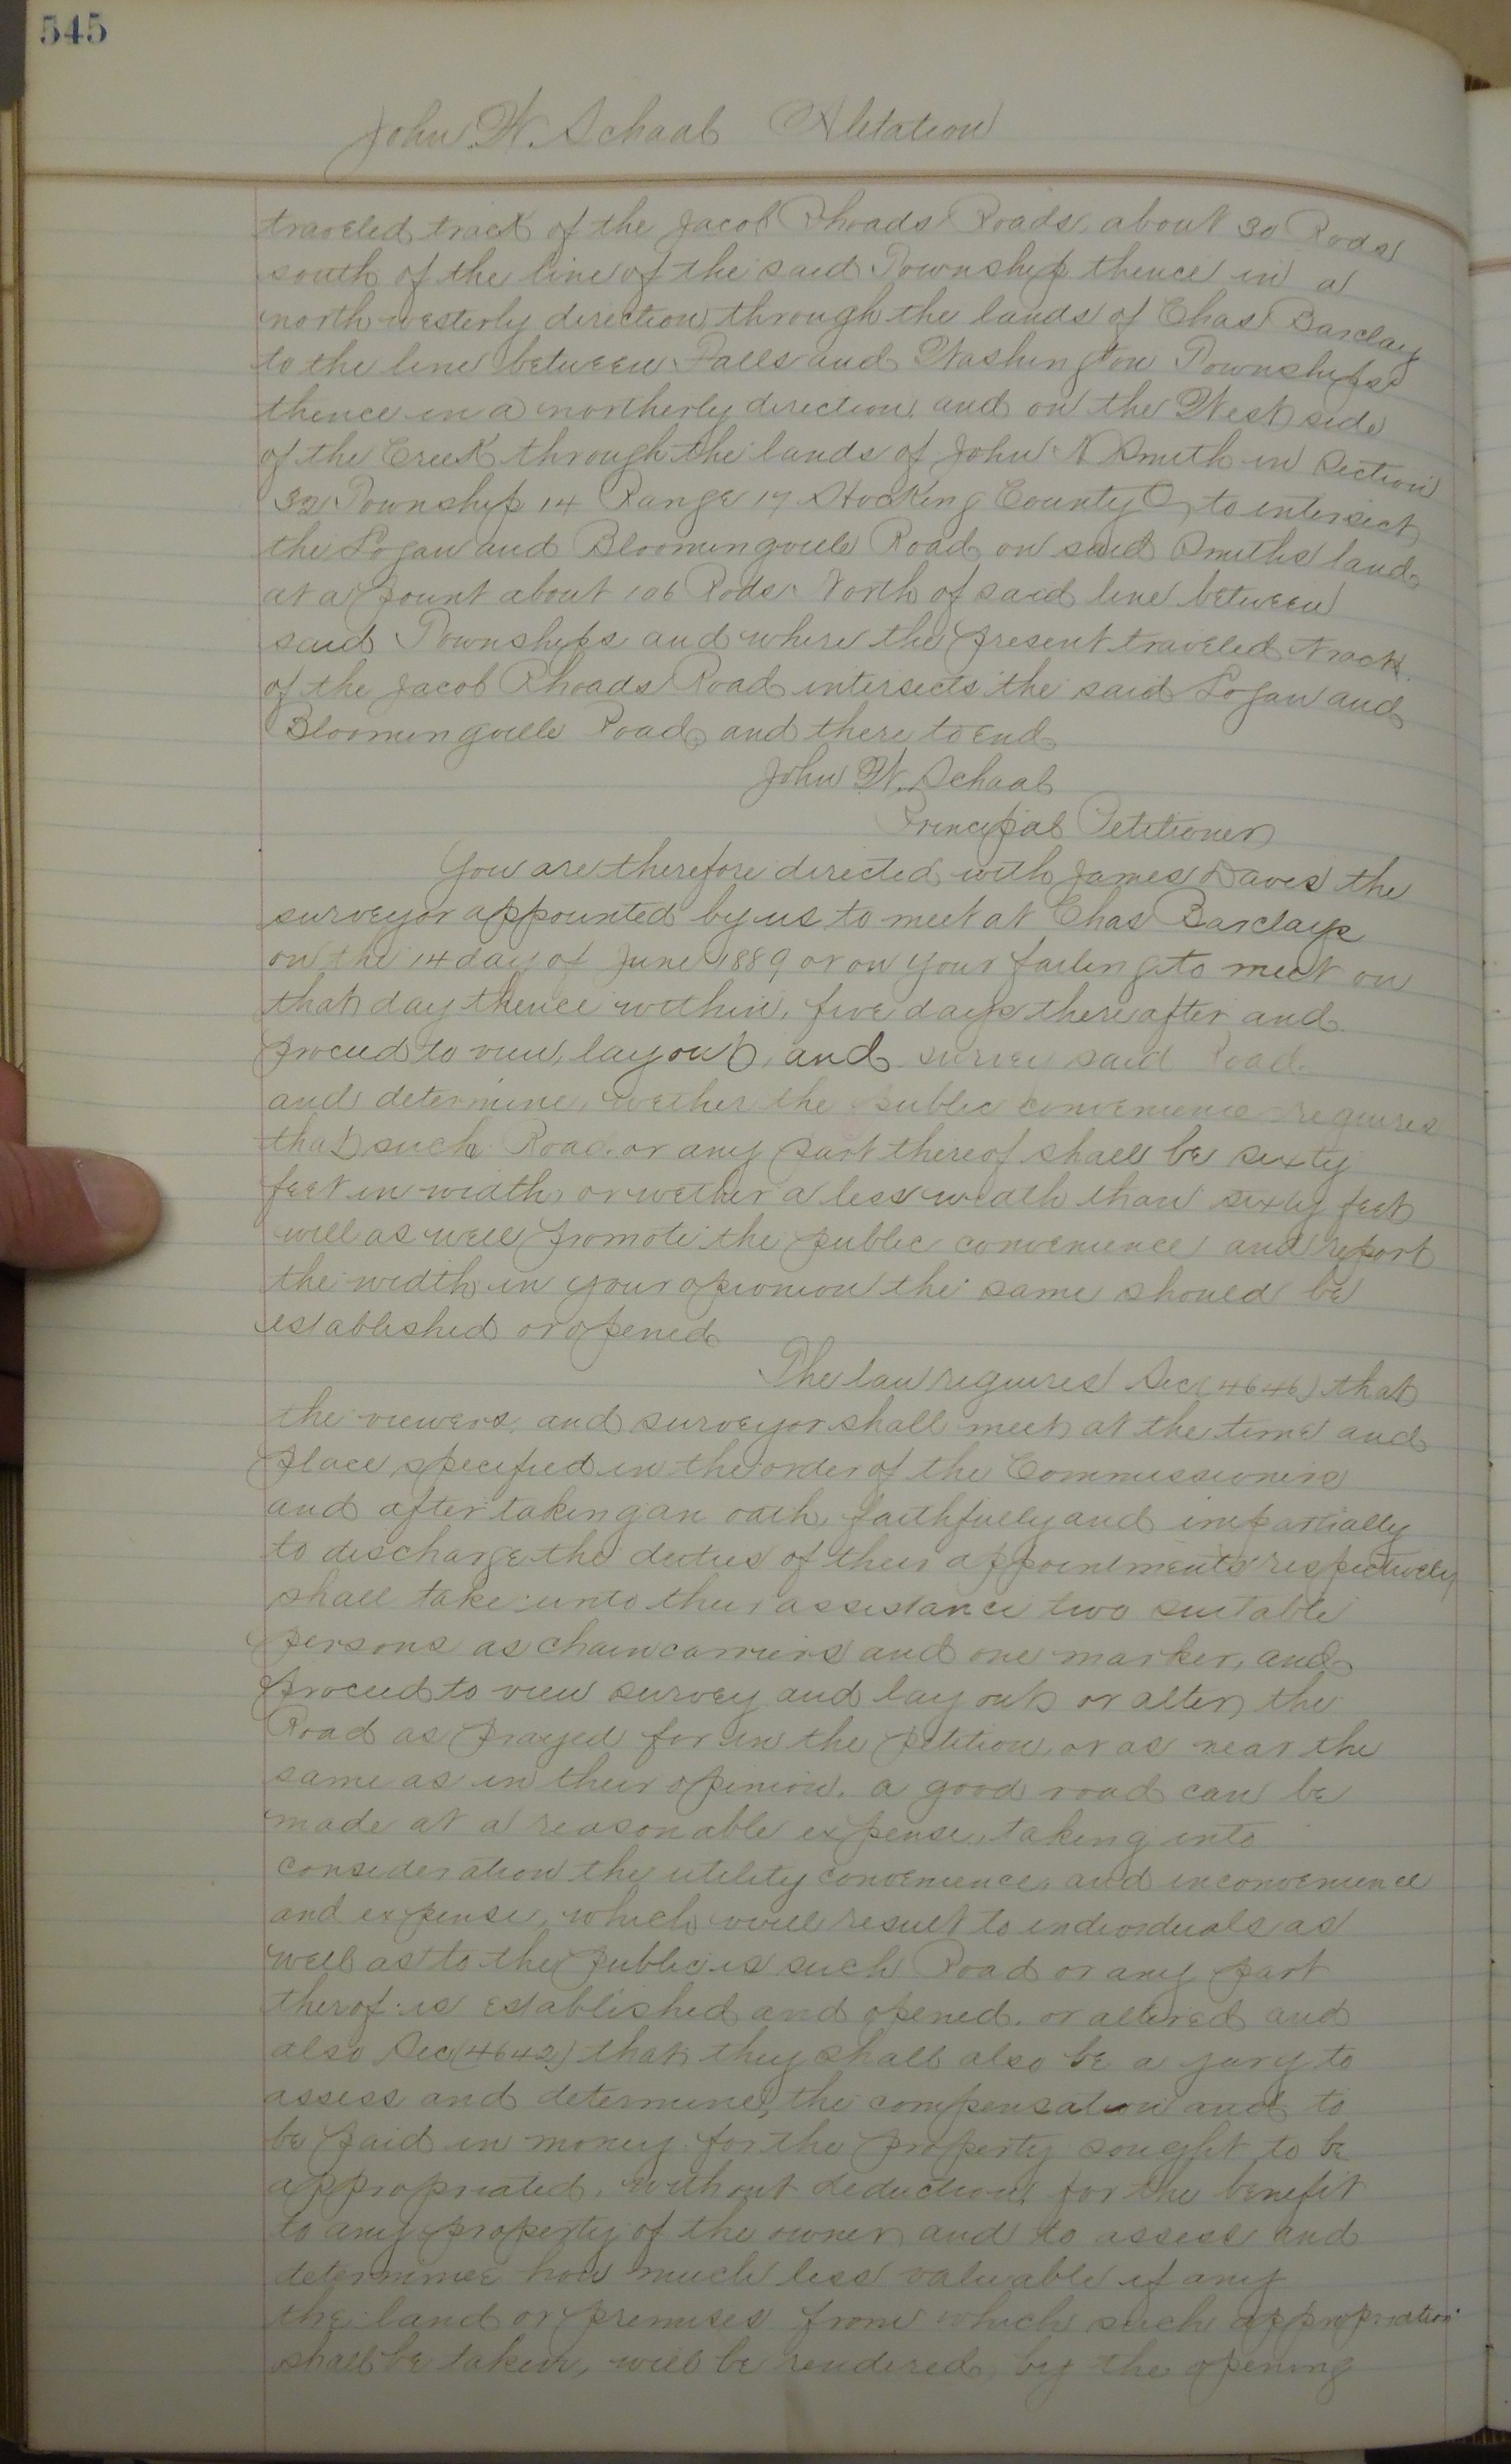 545
John W. Schaal Alitation
traveled track of the Jacob Rhoads Roads, about 30 Rods
south of the line of the said Township thence in a
north westerly direction, through the lands of Chas Barclay
to the line between Falls and Washington Townships
thence in a northerly direction, and on the West side
of the Creek through the lands of John N Smith in Section
32 Township 14 Range 17 Hocking County O, to intersect
the Logan and Bloomingville Road, on said Smiths land
at a point about 106 Rods North of said line between
said Townships and where the present traveled track
of the Jacob Rhoads Road intersects the said Logan and
Bloomingville Road, and there to end
John W. Schaal
Principal Petitioner
You are therefore directed, with James Daves the
surveyor appointed by us to meet at Chas Barclays
on the 14 day of June 1889 or on your failing to meet on
that day thence within, five days there after and
proceed to view, layout, and survey said Road
and determine, wether the public convenience requires
that such Road, or any part thereof shall be sixty
feet in width, or wether a less width than sixty feet
will as well promote the public convenience and report
the width in your opionion the same should be
established or opened
The law requires Sec (4646) that
the viewers, and surveyor shall meet at the time and
place specified in the order of the Commissioners
and after taking an oath, faithfully and impartially
to discharge the duties of their appointments respectively
shall take unto their assistance two suitable
persons as chain carriers and one marker, and
proceed to view survey and lay out or alter the
Road as prayed for in the petition, or as near the
same as in their opinion, a good road can be
made at a reasonable expense, taking into
consideration the utility convenience, and inconvenience
and expense, which will result to individuals as
well as to the public is such Road or any part
therof is established and opened, or altered and
also Sec (4642) that they shall also be a jury to
assess and determine, the compensation and to
be paid in money for the property sought to be
appropriated, without deduction for the benefit
to any property of the owner and to assess and
determinee how much less valuable if any
the land or premises from which such appropriation
shall be taken, will be rendered, by the opening